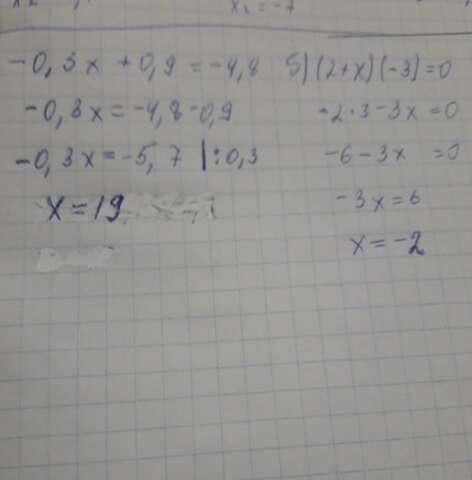 x₂ = -7
-0,3x + 0,9 = -4,8
-0,3x = -4,8-0,9
-0,3x = -5,7 |:0,3
x = 19
5) (2+x)(-3)=0
-2·3-3x=0
-6-3x =0
-3x=6
x=-2